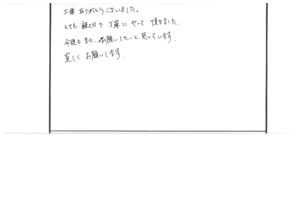 工事ありがとうございました。
とても親切で丁寧にやって頂きました。
今後もまた、お願いしたいと思っています。
宜しくお願いします。